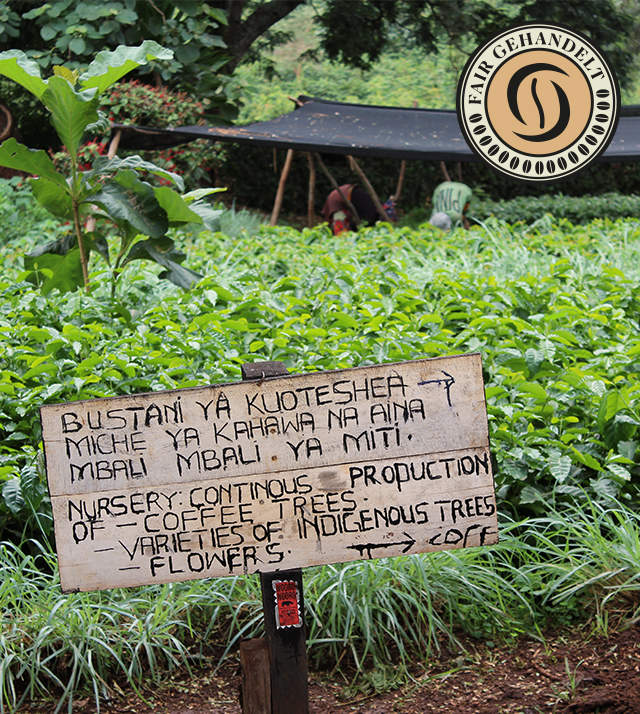 FAIR GEHANDELT
BUSTANI YA KUOTESHEA →
MICHE YA KAHAWA NA AINA
MBALI MBALI YA MITI.
NURSERY: CONTINOUS PRODUCTION
OF - COFFEE TREES.
- VARIETIES OF INDIGENOUS TREES
- FLOWERS. → COFF